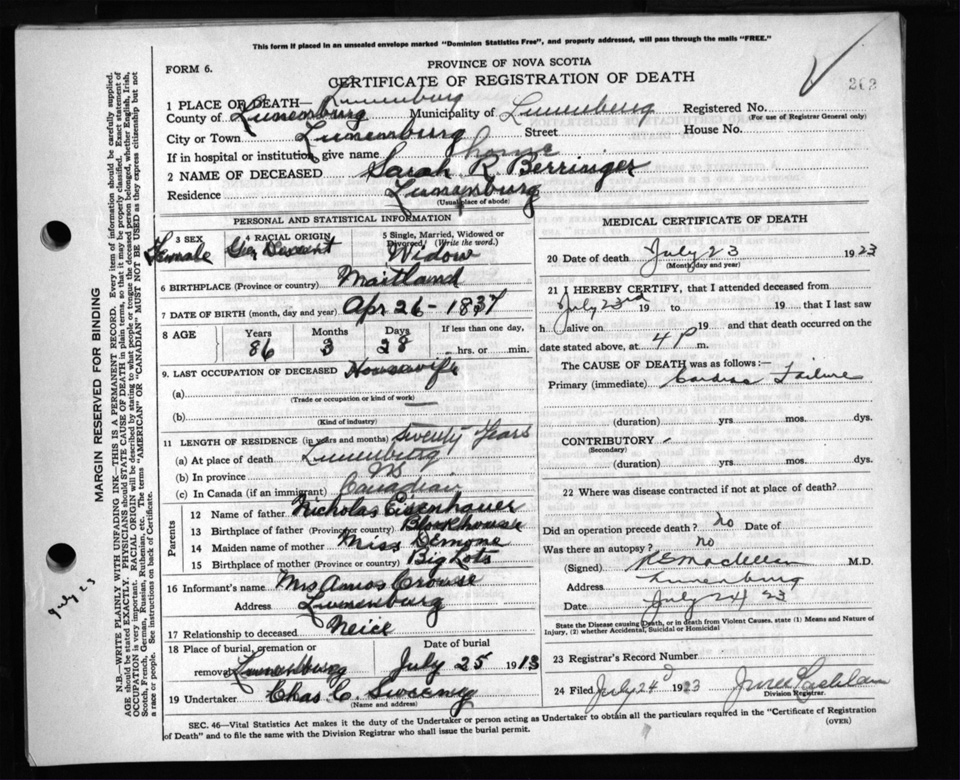 This form if placed in an unsealed envelope marked "Dominion Statistics Free", and properly addressed, will pass through the mails "FREE."
FORM 6.
PROVINCE OF NOVA SCOTIA
CERTIFICATE OF REGISTRATION OF DEATH
1 PLACE OF DEATH— Lunenburg
County of Lunenburg Municipality of Lunenburg Registered No.
(For use of Registrar General only)
City or Town Lunenburg Street House No.
If in hospital or institution, give name home
2 NAME OF DECEASED Sarah R Berringer
Residence Lunenburg
(Usual place of abode)
PERSONAL AND STATISTICAL INFORMATION
3 SEX Female
4 RACIAL ORIGIN Ger Descent
5 Single, Married, Widowed or Divorced (Write the word.) Widow
6 BIRTHPLACE (Province or country) Maitland
7 DATE OF BIRTH (month, day and year) Apr 26 - 1837
8 AGE Years 86 Months 3 Days 28 If less than one day, hrs. or min.
9. LAST OCCUPATION OF DECEASED Housewife
(a)
(Trade or occupation or kind of work)
(b)
(Kind of industry)
11 LENGTH OF RESIDENCE (in years and months) Twenty Years
(a) At place of death Lunenburg
(b) In province NS
(c) In Canada (if an immigrant) Canadian
Parents
12 Name of father Nicholas Eisenhauer
13 Birthplace of father (Province or country) Blockhouse
14 Maiden name of mother Miss Demone
15 Birthplace of mother (Province or Country) Big Lots
16 Informant's name Mrs Amos Crouse
Address Lunenburg
17 Relationship to deceased Neice
18 Place of burial, cremation or removal Lunenburg
Date of burial July 25 1913
19 Undertaker Chas C. Sweeney
(Name and address)
MEDICAL CERTIFICATE OF DEATH
20 Date of death July 23 1923
(Month, day and year)
21 I HEREBY CERTIFY, that I attended deceased from
July 23rd 19 to 19 that I last saw
h alive on 19 and that death occurred on the
date stated above, at 4 P m.
The CAUSE OF DEATH was as follows:—
Primary (immediate) Cardiac Failure
(duration) yrs. mos. dys.
CONTRIBUTORY
(Secondary)
(duration) yrs. mos. dys.
22 Where was disease contracted if not at place of death?
Did an operation precede death? No Date of
Was there an autopsy? No
(Signed) M.D.
Address Lunenburg
Date July 24 23
State the Disease causing Death, or in death from Violent Causes, state (1) Means and Nature of Injury, (2) whether Accidental, Suicidal or Homicidal
23 Registrar's Record Number
24 Filed July 24 1923
Division Registrar.
SEC. 46—Vital Statistics Act makes it the duty of the Undertaker or person acting as Undertaker to obtain all the particulars required in the "Certificate of Registration
of Death" and to file the same with the Division Registrar who shall issue the burial permit. (OVER)
MARGIN RESERVED FOR BINDING
N.B.—WRITE PLAINLY WITH UNFADING INK—THIS IS A PERMANENT RECORD. Every item of information should be carefully supplied.
AGE should be stated EXACTLY. PHYSICIANS should STATE CAUSE OF DEATH in plain terms, so that it may be properly classified. Exact statement of
OCCUPATION is very important. RACIAL ORIGIN will be described by stating to what people or tongue the deceased person belonged, whether English, Irish,
Scotch, French, German, Russian, Ruthenian, etc. The terms "AMERICAN" or "CANADIAN" MUST NOT BE USED as they express citizenship but not
a race or people. See instructions on back of Certificate.
July 23